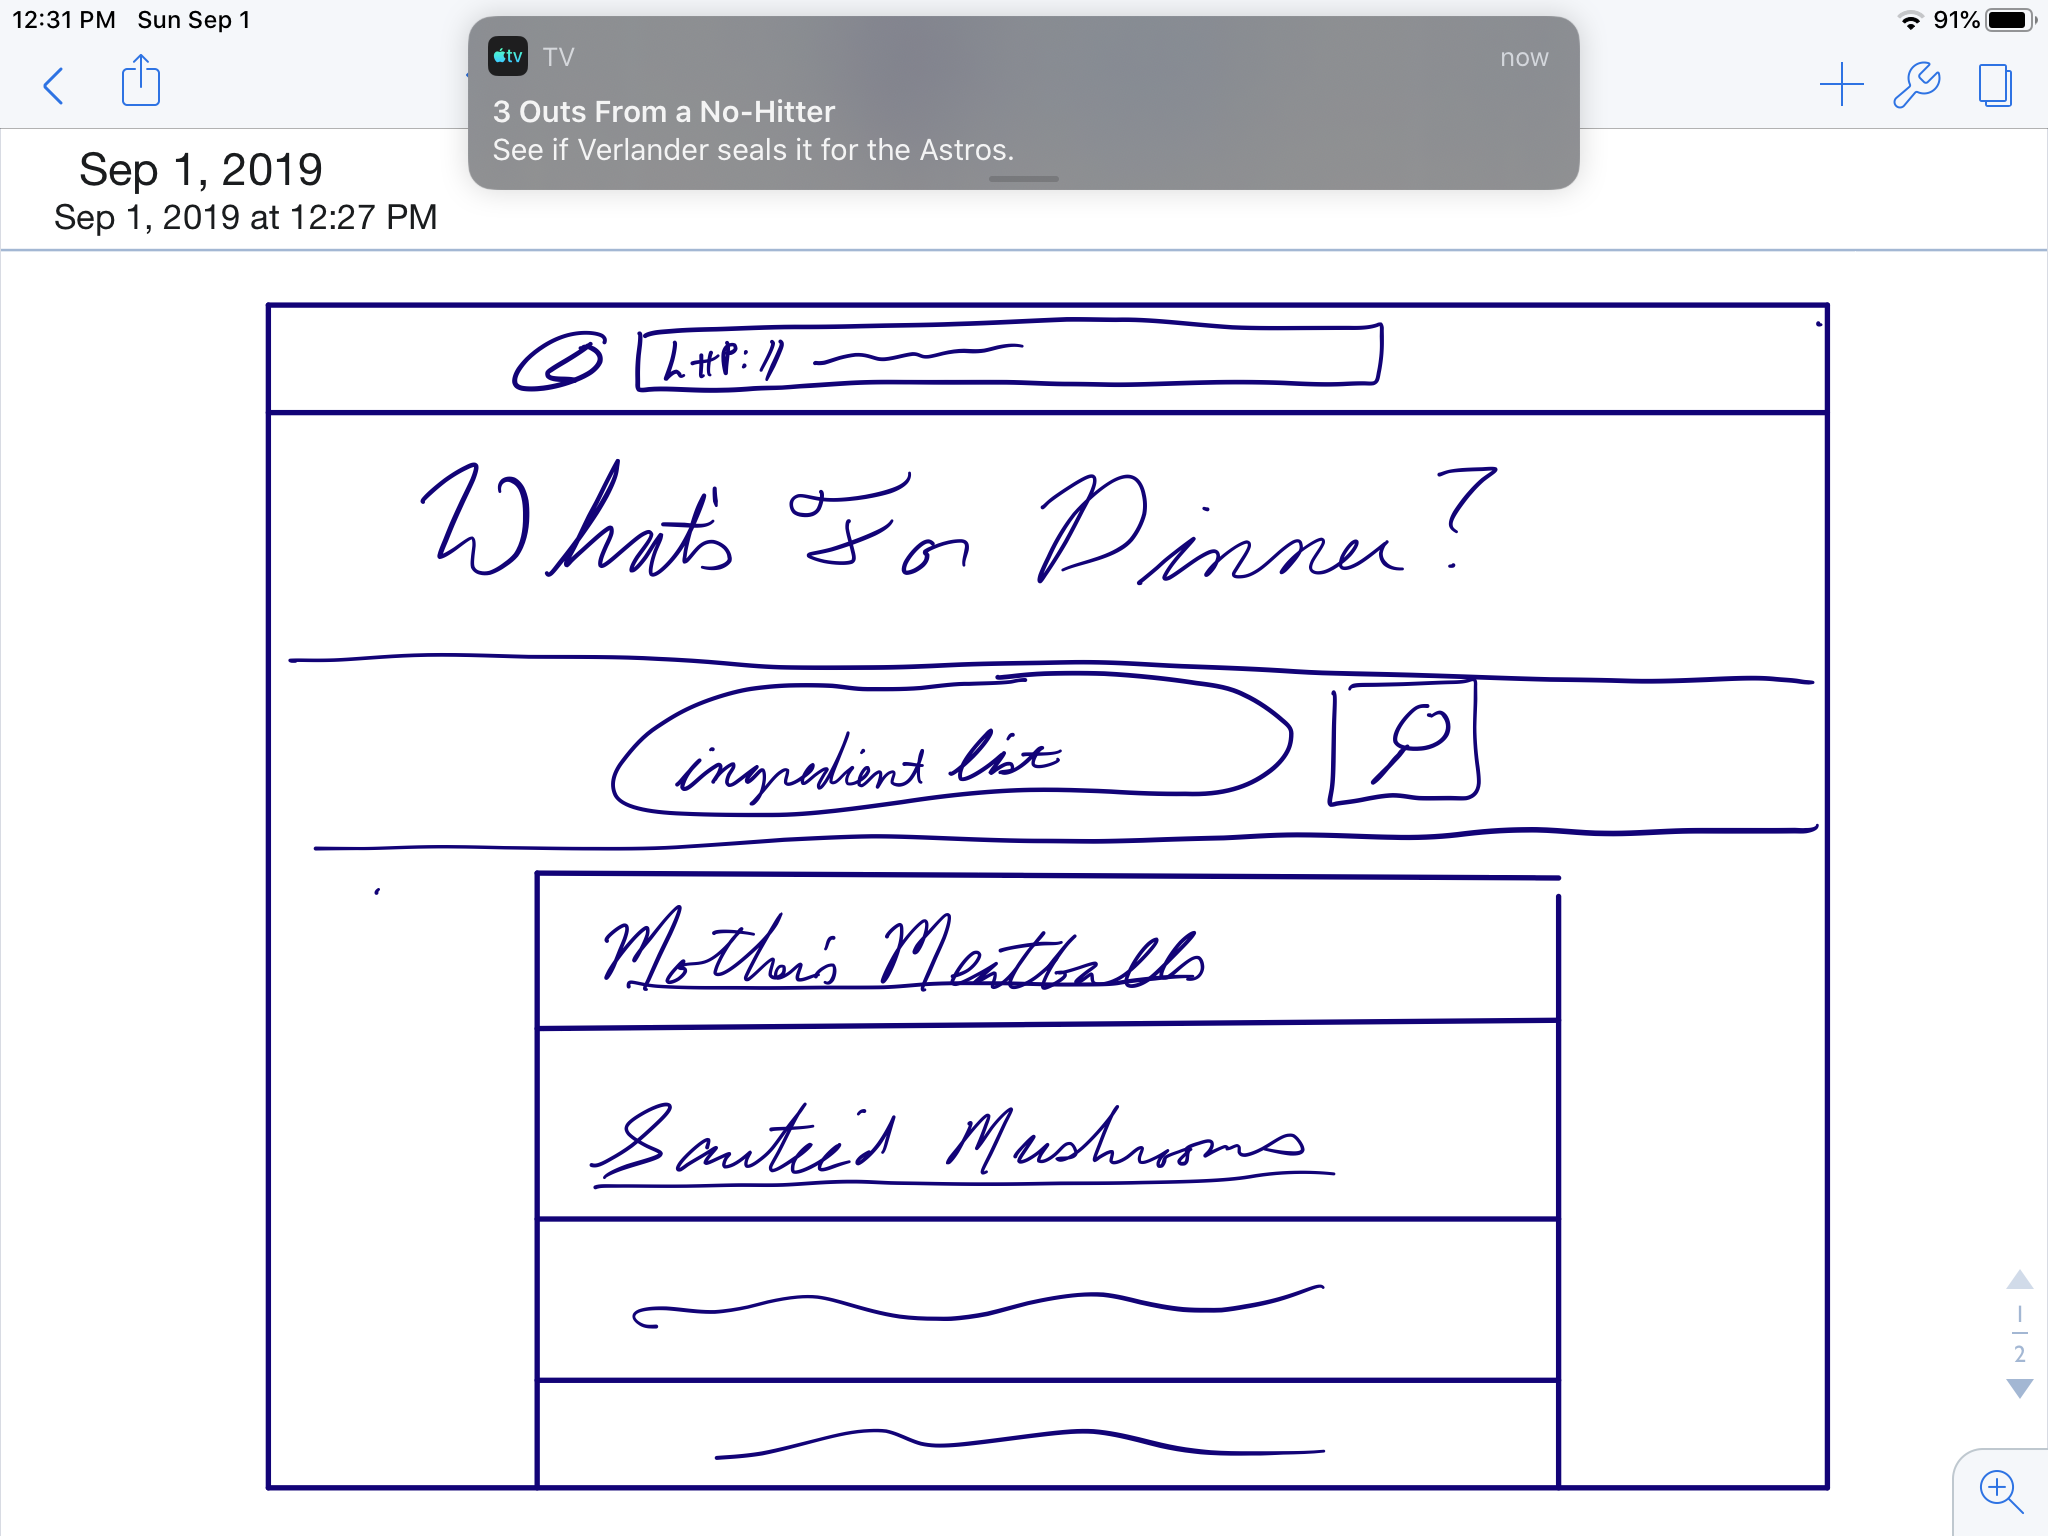 12:31 PM Sun Sep 1
91%
tv TV now
3 Outs From a No-Hitter
See if Verlander seals it for the Astros.
Sep 1, 2019
Sep 1, 2019 at 12:27 PM
http://
What's For Dinner?
ingredient list
Mother's Meatballs
Sauteé'd Mushrooms
1
2